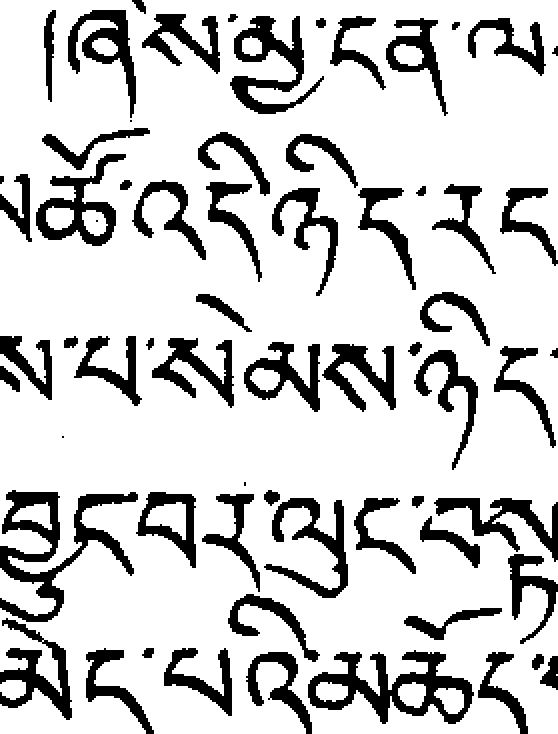 །ཞེས་མྱ་ངན་ལ་
ཚོ་འདི་ཉིད་ར་
ས་པ་སེམས་ཉིད་
བྱུང་བར་ལུང་བསྟ
མེད་པའི་མཆོད་